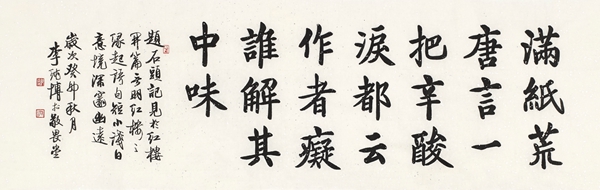 滿紙荒
唐言一
把辛酸
淚都云
作者癡
誰解其
中味
題石頭記見於紅樓
開篇云明紅樓之
緣起詩句短小議白
意境深邃幽遠
歲次癸卯秋月
李 博於敬畏堂